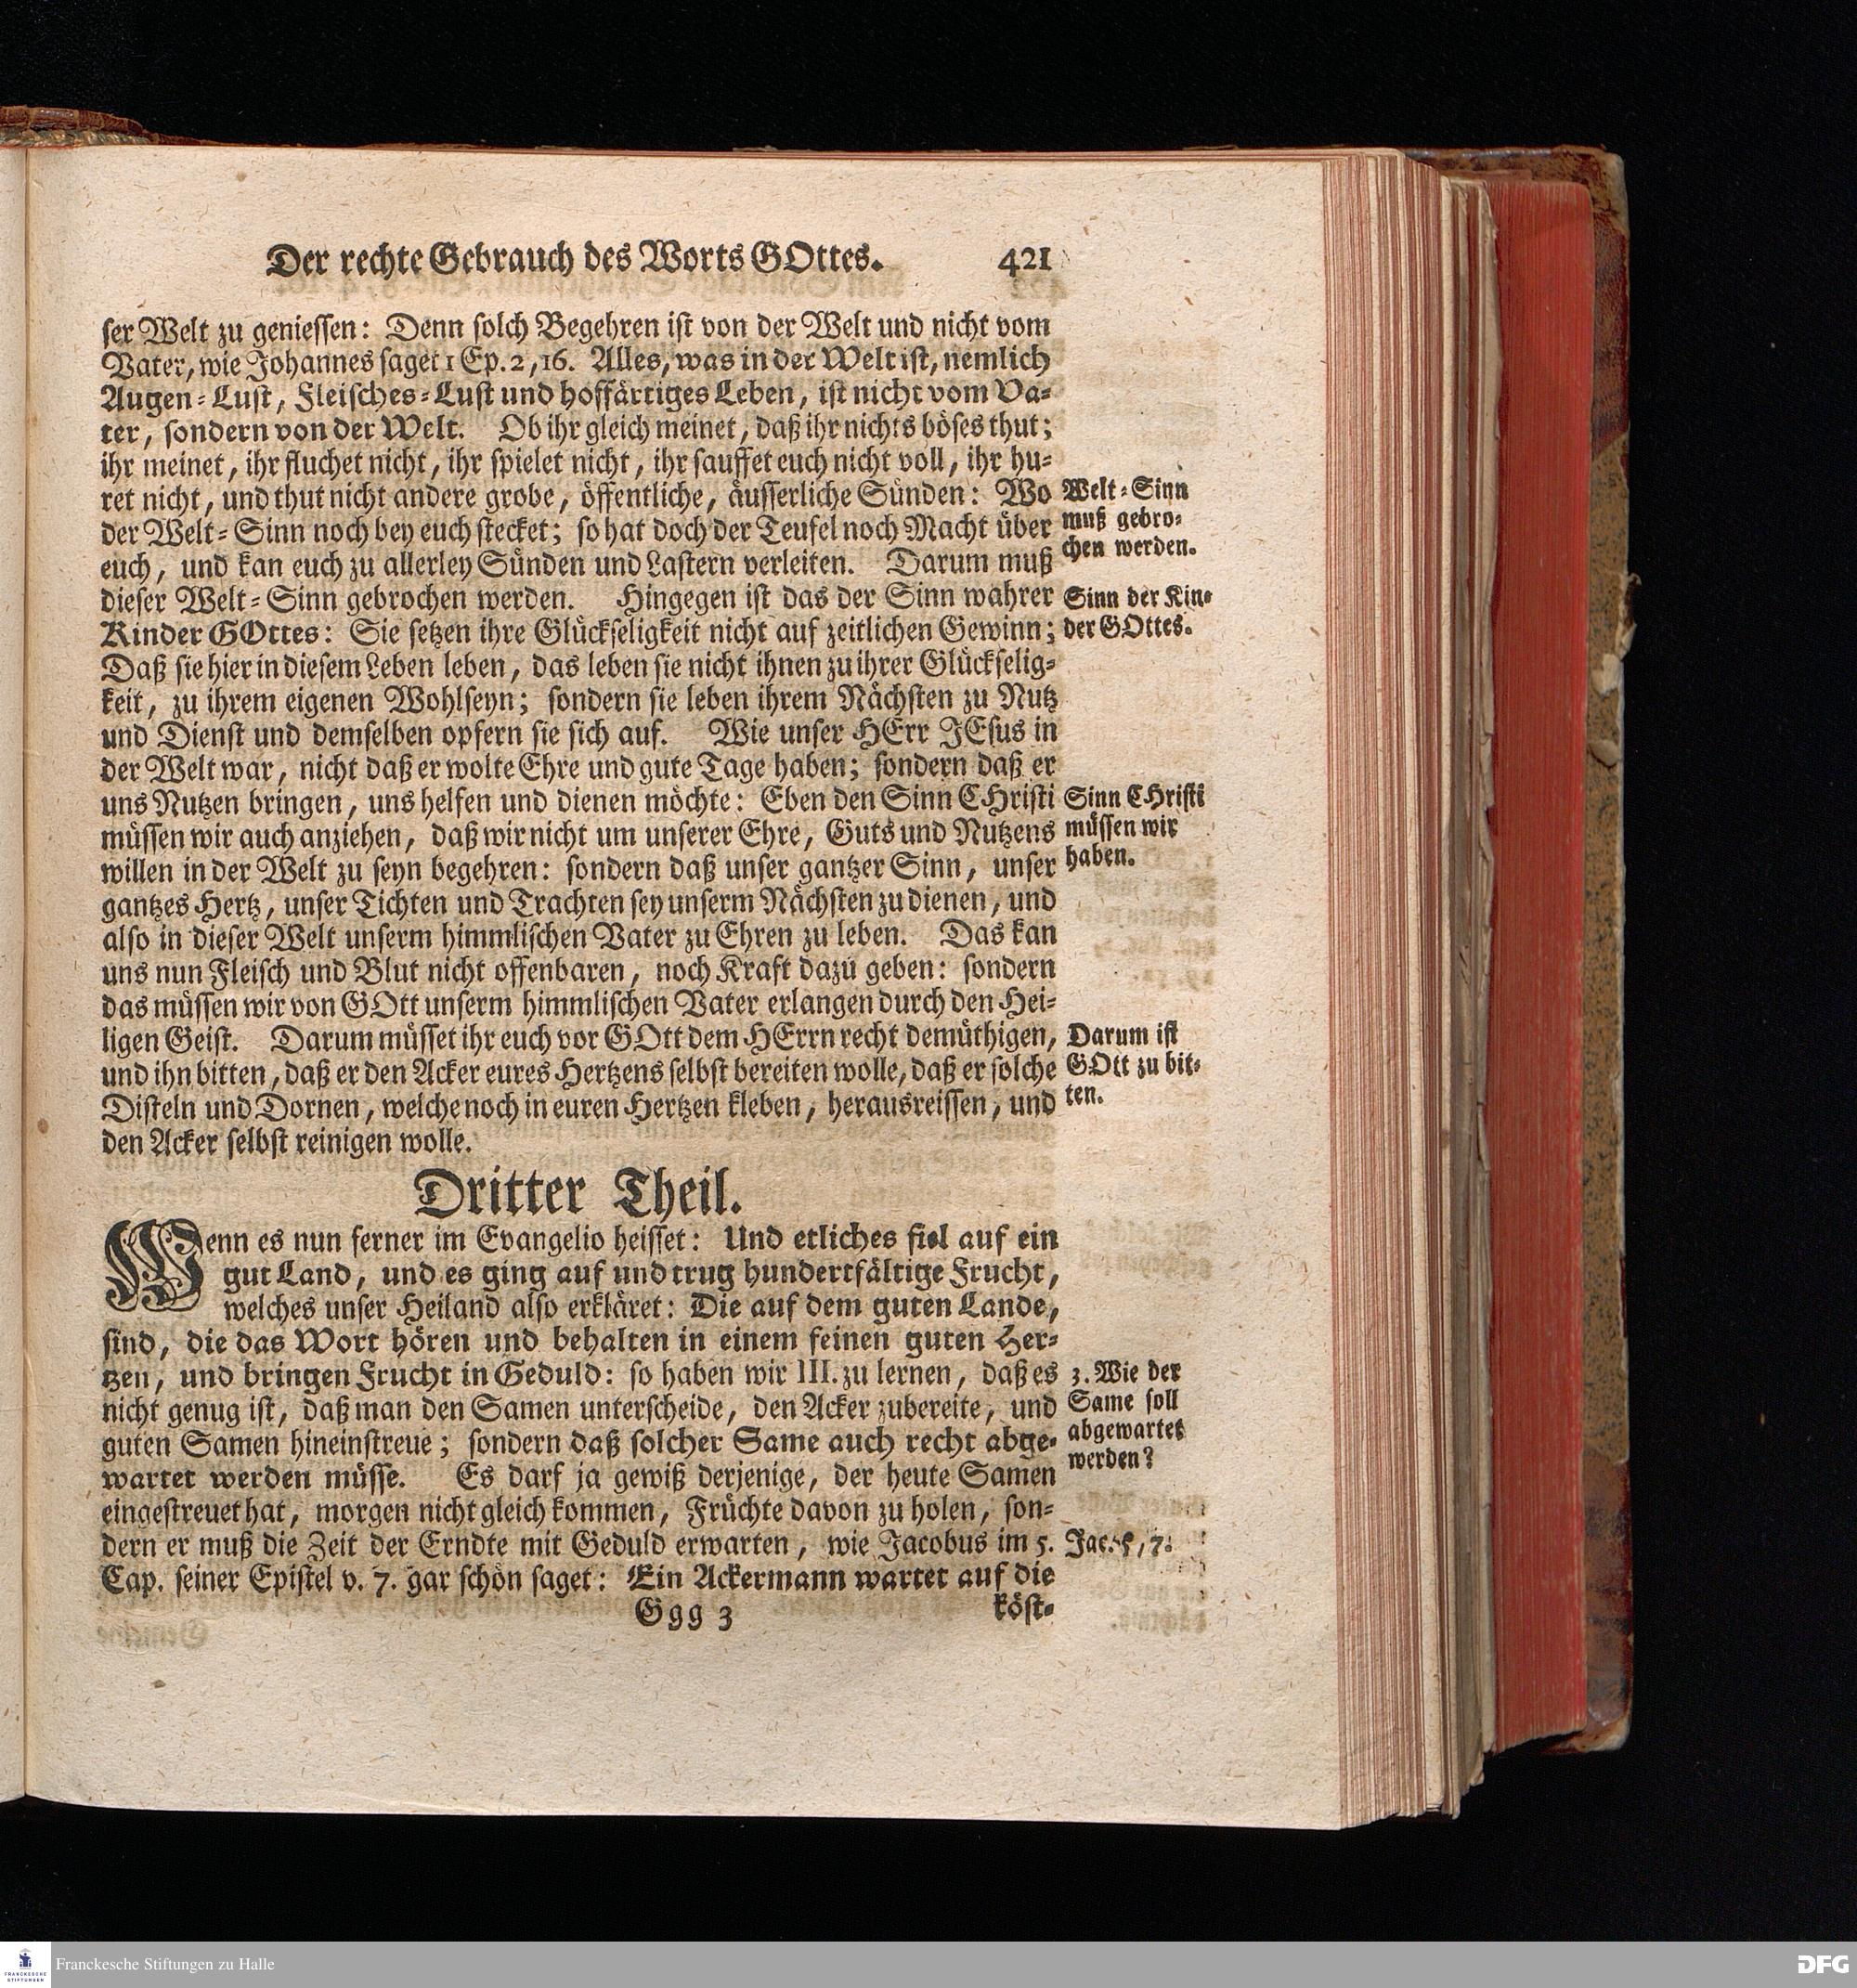 Der rechte Gebrauch des Worts GOttes. 421
ser Welt zu geniessen: Denn solch Begehren ist von der Welt und nicht vom
Vater, wie Johannes saget 1 Ep. 2, 16. Alles, was in der Welt ist, nemlich
Augen-Lust, Fleisches-Lust und hoffärtiges Leben, ist nicht vom Va-
ter, sondern von der Welt. Ob ihr gleich meinet, daß ihr nichts böses thut;
ihr meinet, ihr fluchet nicht, ihr spielet nicht, ihr sauffet euch nicht voll, ihr hu-
ret nicht, und thut nicht andere grobe, öffentliche, äusserliche Sünden: Wo
der Welt-Sinn noch bey euch stecket; so hat doch der Teufel noch Macht über
euch, und kan euch zu allerley Sünden und Lastern verleiten. Darum muß
dieser Welt-Sinn gebrochen werden. Hingegen ist das der Sinn wahrer
Kinder GOttes: Sie setzen ihre Glückseligkeit nicht auf zeitlichen Gewinn;
Daß sie hier in diesem Leben leben, das leben sie nicht ihnen zu ihrer Glückselig-
keit, zu ihrem eigenen Wohlseyn; sondern sie leben ihrem Nächsten zu Nutz
und Dienst und demselben opfern sie sich auf. Wie unser HErr JEsus in
der Welt war, nicht daß er wolte Ehre und gute Tage haben; sondern daß er
uns Nutzen bringen, uns helfen und dienen möchte: Eben den Sinn CHristi
müssen wir auch anziehen, daß wir nicht um unserer Ehre, Guts und Nutzens
willen in der Welt zu seyn begehren: sondern daß unser gantzer Sinn, unser
gantzes Hertz, unser Tichten und Trachten sey unserm Nächsten zu dienen, und
also in dieser Welt unserm himmlischen Vater zu Ehren zu leben. Das kan
uns nun Fleisch und Blut nicht offenbaren, noch Kraft dazu geben: sondern
das müssen wir von GOtt unserm himmlischen Vater erlangen durch den Hei-
ligen Geist. Darum müsset ihr euch vor GOtt dem HErrn recht demüthigen,
und ihn bitten, daß er den Acker eures Hertzens selbst bereiten wolle, daß er solche
Disteln und Dornen, welche noch in euren Hertzen kleben, herausreissen, und
den Acker selbst reinigen wolle.
Welt-Sinn
muß gebro-
chen werden.
Sinn der Kin-
der GOttes.
Sinn CHristi
müssen wir
haben.
Darum ist
GOtt zu bit-
ten.
Dritter Theil.
Wenn es nun ferner im Evangelio heisset: Und etliches fiel auf ein
gut Land, und es ging auf und trug hundertfältige Frucht,
welches unser Heiland also erkläret: Die auf dem guten Lande,
sind, die das Wort hören und behalten in einem feinen guten Her-
tzen, und bringen Frucht in Geduld: so haben wir III. zu lernen, daß es
nicht genug ist, daß man den Samen unterscheide, den Acker zubereite, und
guten Samen hineinstreue; sondern daß solcher Same auch recht abge-
wartet werden müsse. Es darf ja gewiß derjenige, der heute Samen
eingestreuet hat, morgen nicht gleich kommen, Früchte davon zu holen, son-
dern er muß die Zeit der Erndte mit Geduld erwarten, wie Jacobus im 5.
Cap. seiner Epistel v. 7. gar schön saget: Ein Ackermann wartet auf die
3. Wie der
Same soll
abgewartet
werden?
Jac. 5, 7.
Ggg 3 köst-
Franckesche Stiftungen zu Halle
FRANCKESCHE
STIFTUNGEN
DFG